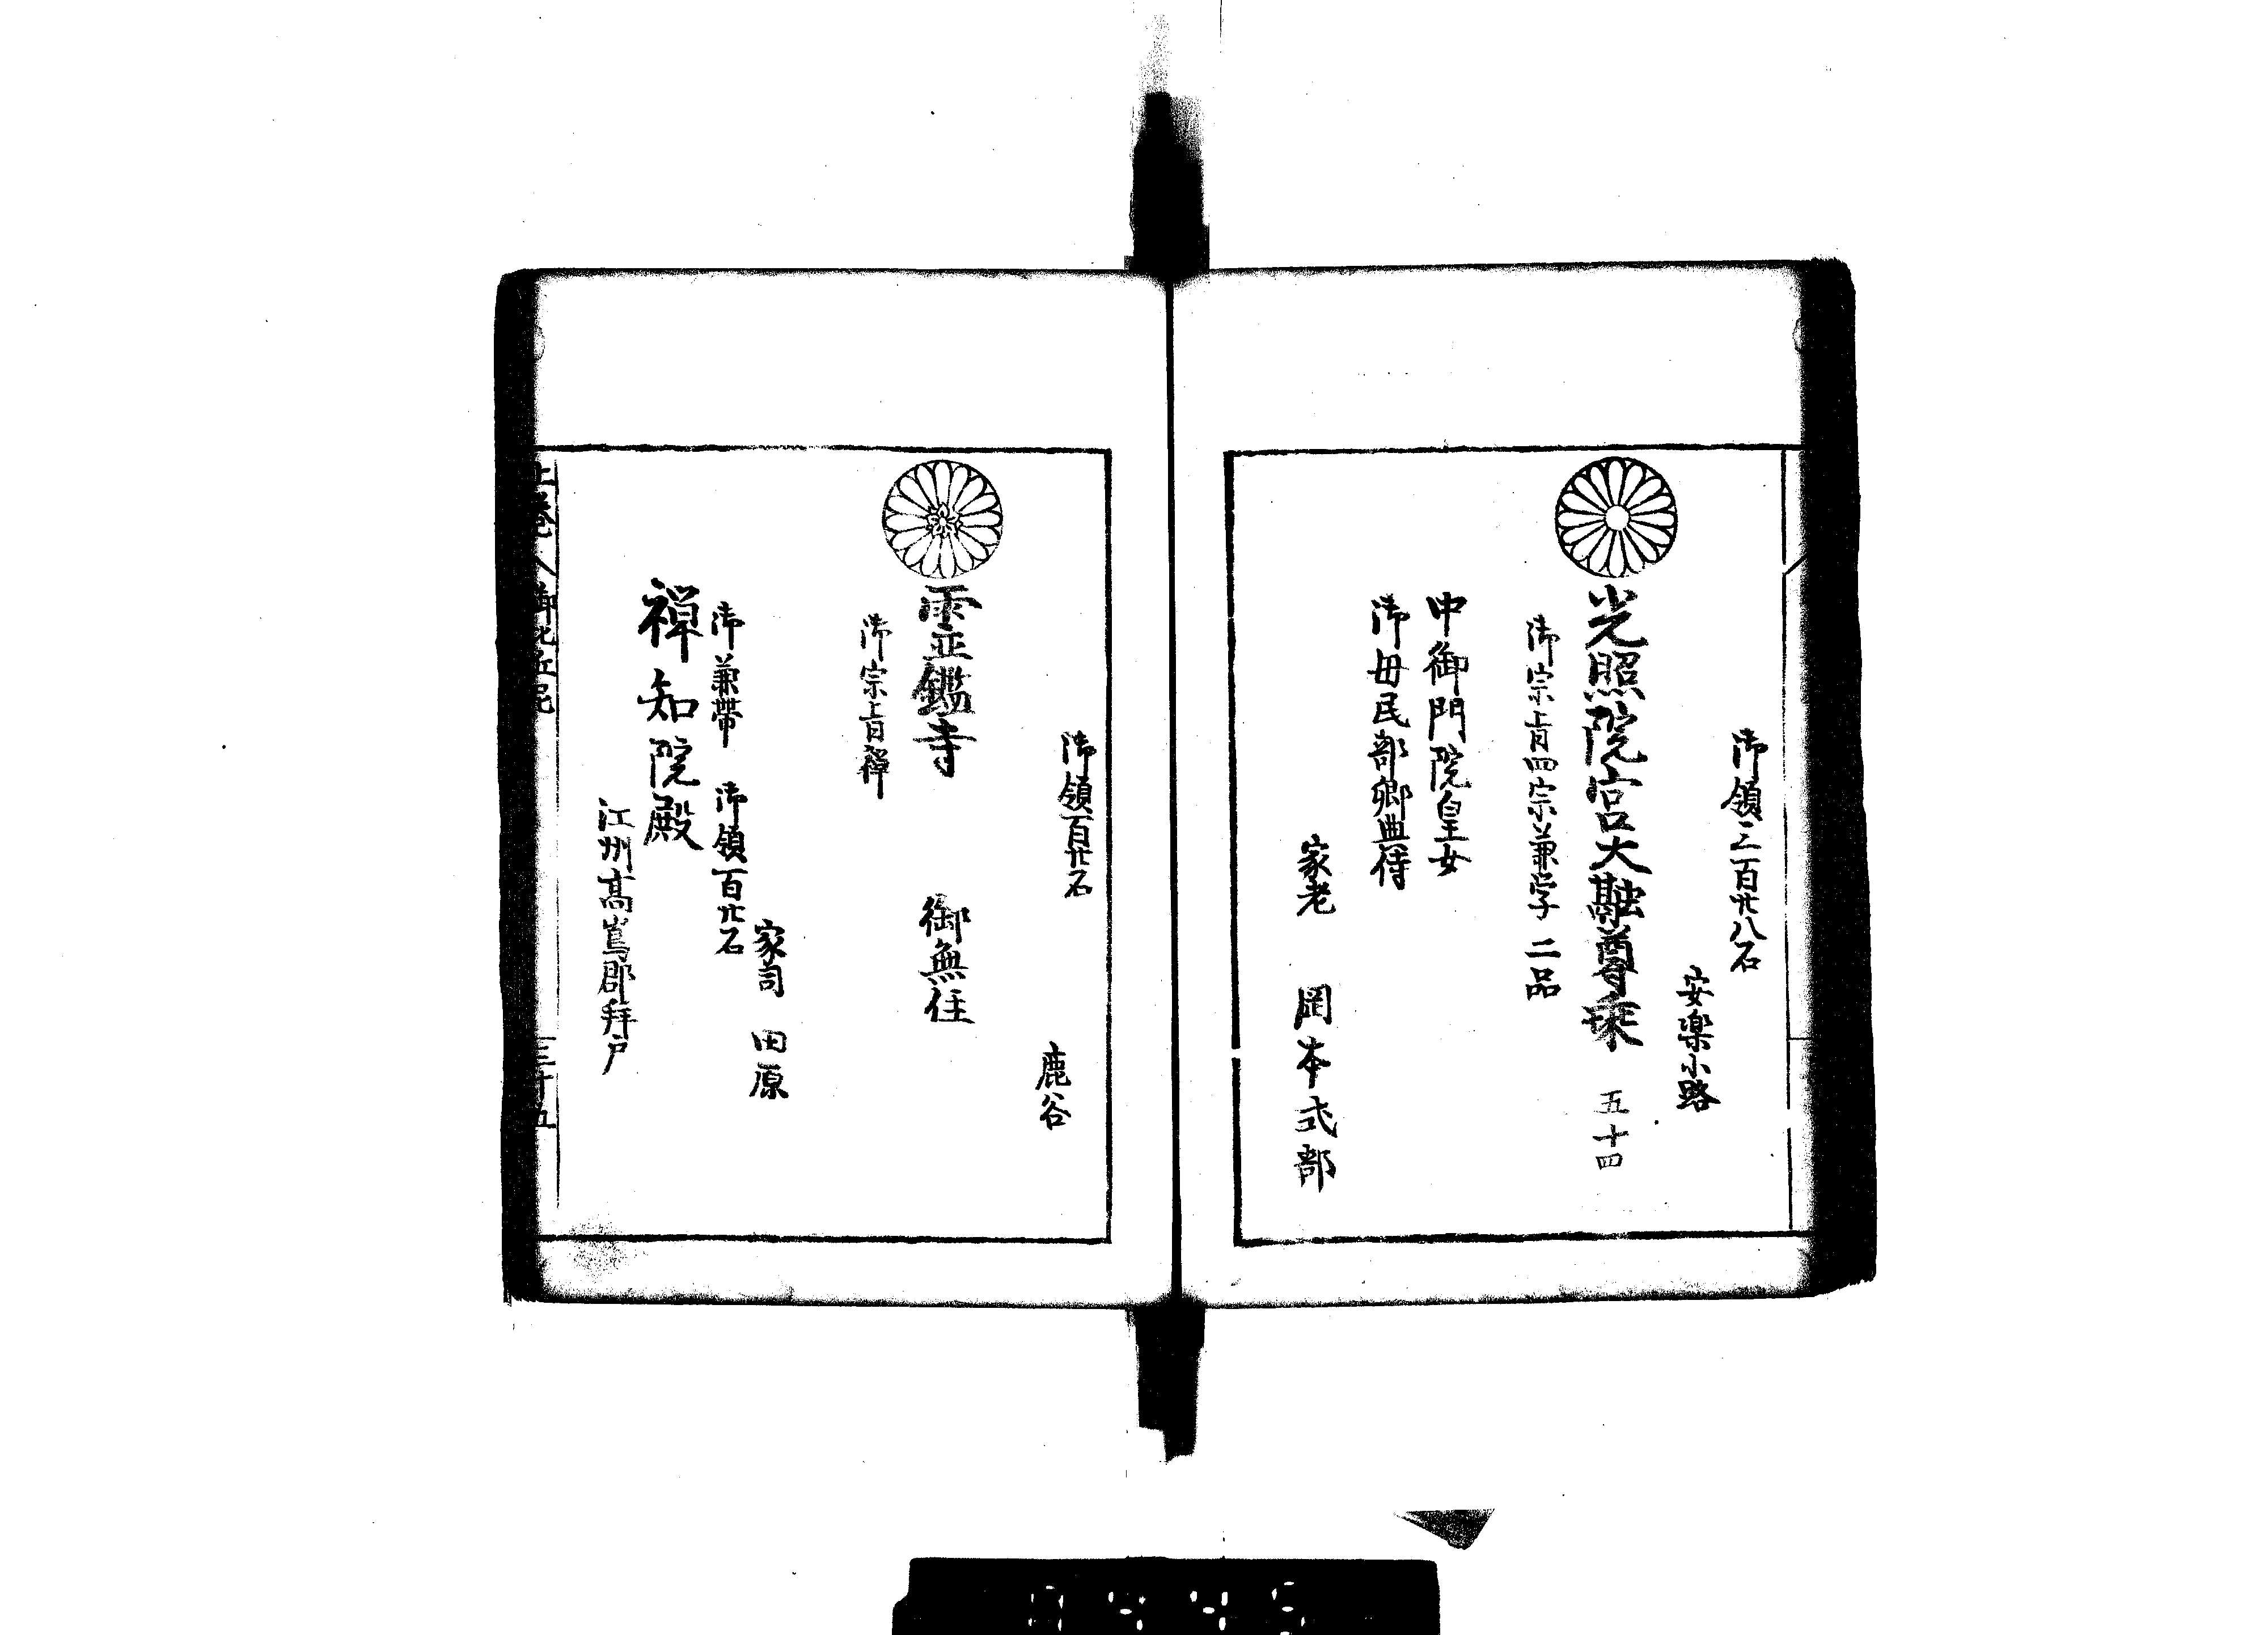 御領三百卅八石
安楽小路
光照院宮大融尊乘 五十四
御宗旨四宗兼学 二品
中御門院皇女
御母民部卿典侍
家老 岡本式部
御領百廿石
鹿谷
霊鑑寺 御無住
御宗旨禅
家司 田原
御兼帯 御領百廿石
禅知院殿
江州高嶌郡拜戸
上巻 御比丘尼 三十五